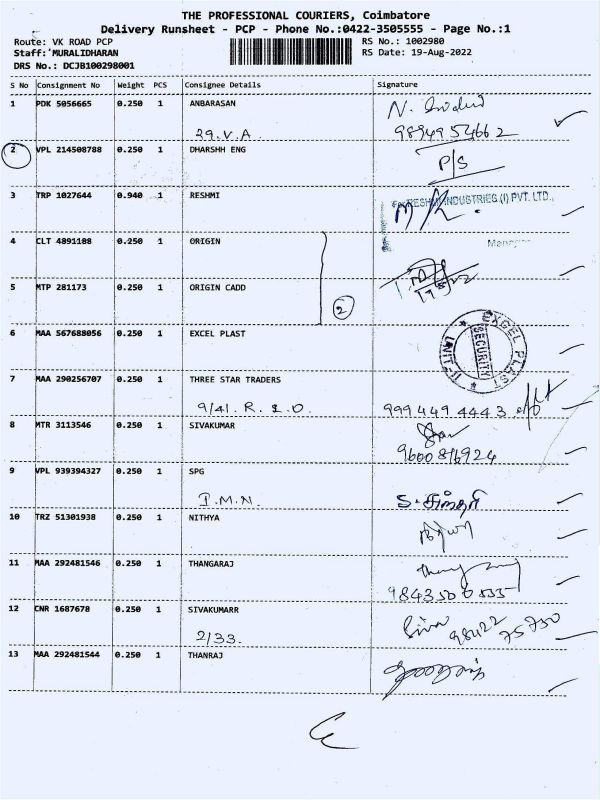 THE PROFESSIONAL COURIERS, Coimbatore
Delivery Runsheet - PCP - Phone No.:0422-3505555 - Page No.:1
Route: VK ROAD PCP RS No.: 1002980
Staff: MURALIDHARAN RS Date: 19-Aug-2022
DRS No.: DCJB100298001
S No Consignment No Weight PCS Consignee Details Signature
1 PDK 5056665 0.250 1 ANBARASAN
29.V.A. 9894954662
2 VPL 214508788 0.250 1 DHARSHH ENG
P/S
3 TRP 1027644 0.940 1 RESHMI
For RESHMI INDUSTRIES (I) PVT. LTD.,
4 CLT 4891188 0.250 1 ORIGIN
Manager
5 MTP 281173 0.250 1 ORIGIN CADD
2
6 MAA 567688056 0.250 1 EXCEL PLAST
EXCEL PLAST UNIT-II SECURITY
7 MAA 290256707 0.250 1 THREE STAR TRADERS
9/41. R.S.O. 9994494443
8 MTR 3113546 0.250 1 SIVAKUMAR
9600816924
9 VPL 939394327 0.250 1 SPG
I.M.N.
10 TRZ 51301938 0.250 1 NITHYA
நித்யா
11 MAA 292481546 0.250 1 THANGARAJ
12 CNR 1687678 0.250 1 SIVAKUMARR
2/33. Siva 98422 75750
13 MAA 292481544 0.250 1 THANRAJ